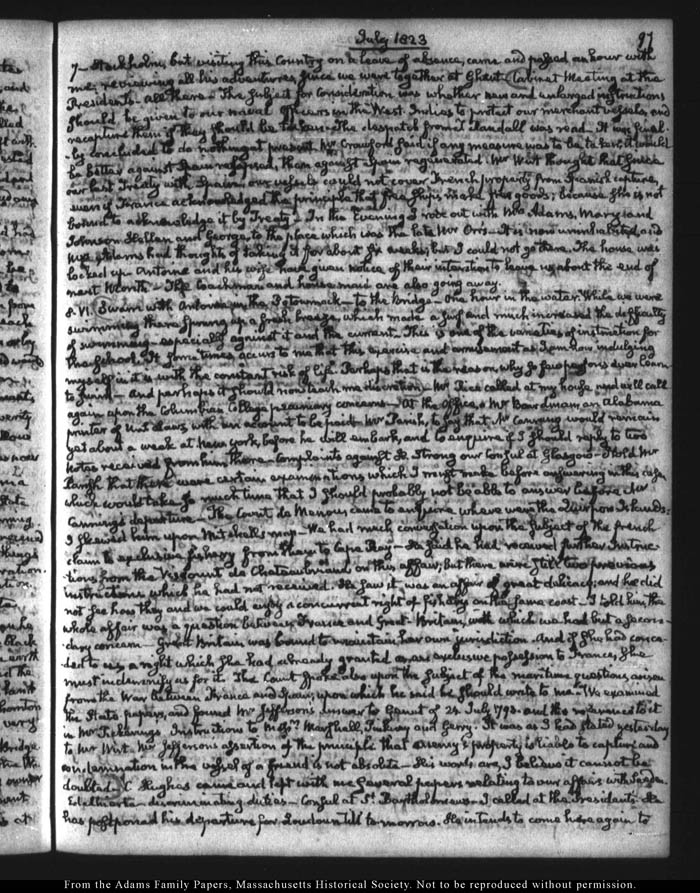 July 1823
97
7— Stockholm, but visiting this Country on a leave of absence, came and passed an hour with
me; reviewing all his adventures, since we were together at Ghent. Cabinet Meeting at the
Presidents— all there— The subject for consideration was whether new and enlarged instructions
should be given to our naval Officers in the West-Indies to protect our merchant vessels, and
recapture them if they should be taken— The despatch from Randall was read. It was final-
ly concluded to do nothing at present. Mr Crawford said if any measure was to be taken it would
be better against Spain relapsed, than against Spain regenerated. Mr Wirt thought that since
our last Treaty with Spain our vessels could not cover French property from Spanish capture,
even if France acknowledged the principle that free ships make free goods; because she is not
bound to acknowledge it by Treaty— In the Evening I rode out with Mrs Adams, Mary and
Johnson Hellen and George, to the place which was the late Mr Orr's— It is now uninhabited, and
Mrs Adams had thoughts of taking it for about six weeks; but I could not go there. The house was
locked up. Antoine and his wife have given notice of their intention to leave us about the end of
next Month— The Coachman and house maid are also going away.
8. VI. Swam with Antoine in the Potowmack— to the bridge— One hour in the water. While we were
swimming there sprung up a fresh breeze, which made a surf and much increased the difficulty
of swimming— especially against it and the current. This is one of the varieties of instruction for
the school. It sometimes occurs to me that this exercise and amusement as I am now indulging
myself in it is with the constant risk of life. Perhaps that is the reason why so few persons ever learn
to swim— and perhaps it should now teach me discretion— Mr Rice called at my house and will call
again upon the Columbian College pecuniary concerns— At the Office, a Mr Boardman an Alabama
printer of the Laws, with an account to be paid— Mr Parish, to say that Mr Canning would remain
yet about a week at New York, before he will embark, and to enquire if I should reply to two
notes received from him there— complaints against H. Strong our Consul at Glasgow— I told Mr
Parish that there were certain examinations which I must make before answering in this case
which would take so much time that I should probably not be able to answer before Mr
Canning's departure— The Count de Menou came to enquire where were the Quirpon Islands:
I shewed him upon Mitchell's map— We had much conversation upon the subject of the French
claim to exclusive fishery from thence to Cape Ray— He said he had received further Instruc-
tions from the Viscount de Chateaubriand on this affair; but there were still two previous
instructions which he had not received. He saw it was an affair of great delicacy; and he did
not see how they and we could enjoy a concurrent right of fishery on the same coast— I told him the
whole affair was a question between France and Great-Britain, with which we had but a secon-
dary concern— Great Britain was bound to maintain her own jurisdiction. And if she had conce-
ded to us a right which she had already granted as an exclusive possession to France, she
must indemnify us for it. The Count spoke also upon the subject of the maritime questions, arisen
from the War between France and Spain; upon which he said he should write to me— We examined
the State papers, and found Mr Jefferson's Answer to Genet of 24. July 1793. and the reference to it
in Mr Pickering's Instructions to Messrs Marshall, Pinckney and Gerry. It was as I had stated yesterday
to Mr Wirt. Mr Jefferson's assertion of the principle that enemy's property is liable to capture and
condemnation in the vessel of a friend is not absolute— His words are, I believe it cannot be
doubted. C. Hughes came and left with me several papers relating to our affairs with Sweden.
discriminating duties— Consul at St. Bartholomews— I called at the Presidents— He
has postponed his departure for Loudoun till to-morrow. He intends to come here again to
From the Adams Family Papers, Massachusetts Historical Society. Not to be reproduced without permission.